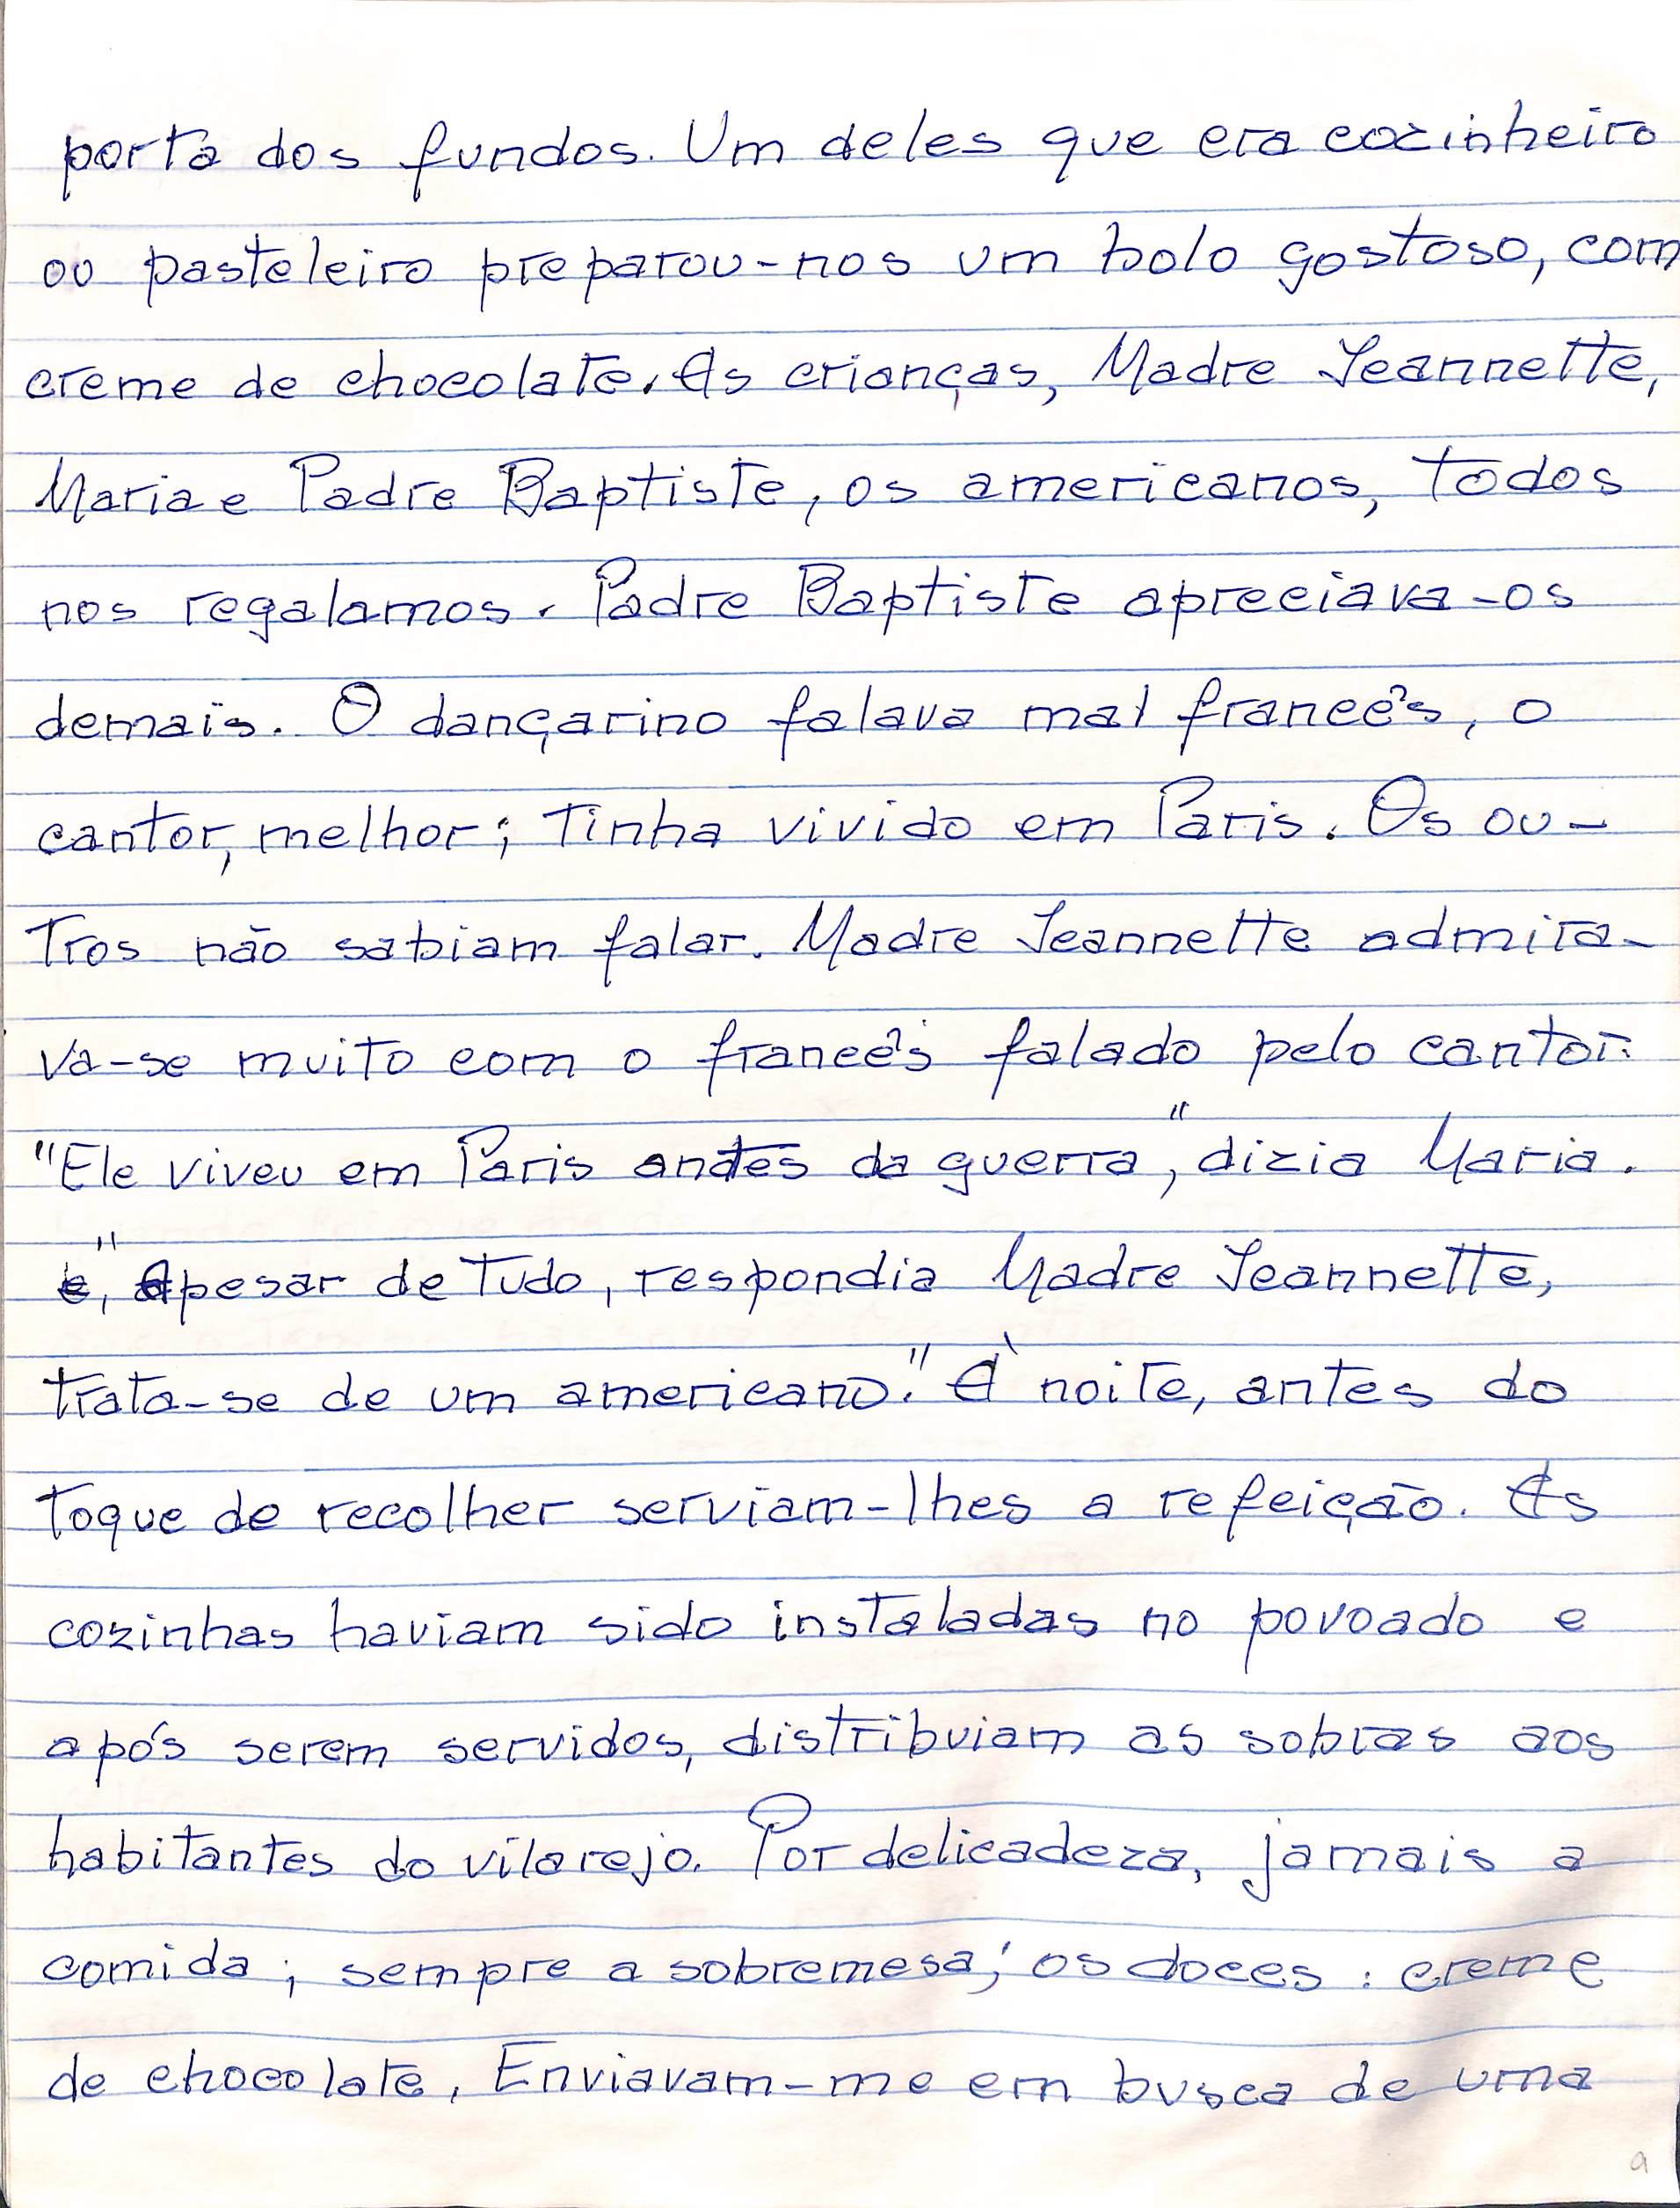 porta dos fundos. Um deles que era cozinheiro
ou pasteleiro preparou-nos um bolo gostoso, com
creme de chocolate. As crianças, Madre Jeannette,
Maria e Padre Baptiste, os americanos, todos
nos regalamos. Padre Baptiste apreciava-os
demais. O dançarino falava mal francês, o
cantor, melhor; tinha vivido em Paris. Os ou-
tros não sabiam falar. Madre Jeannette admira-
va-se muito com o francês falado pelo cantor:
"Ele viveu em Paris antes da guerra", dizia Maria.
e, "Apesar de tudo, respondia Madre Jeannette,
trata-se de um americano." À noite, antes do
toque de recolher serviam-lhes a refeição. As
cozinhas haviam sido instaladas no povoado e
após serem servidos, distribuiam as sobras aos
habitantes do vilarejo. Por delicadeza, jamais a
comida; sempre a sobremesa; os doces: creme
de chocolate. Enviavam-me em busca de uma
9